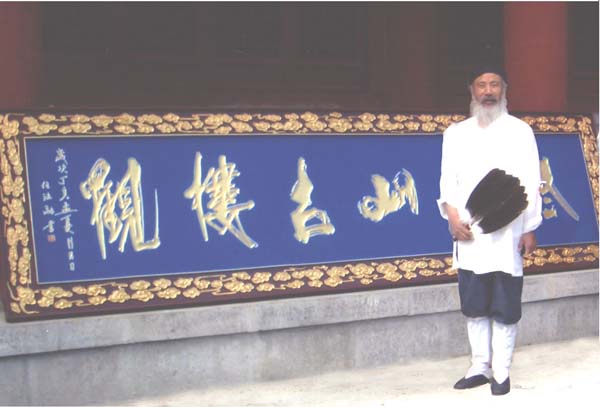 山古樓觀
歲次丁亥孟夏
任法融書